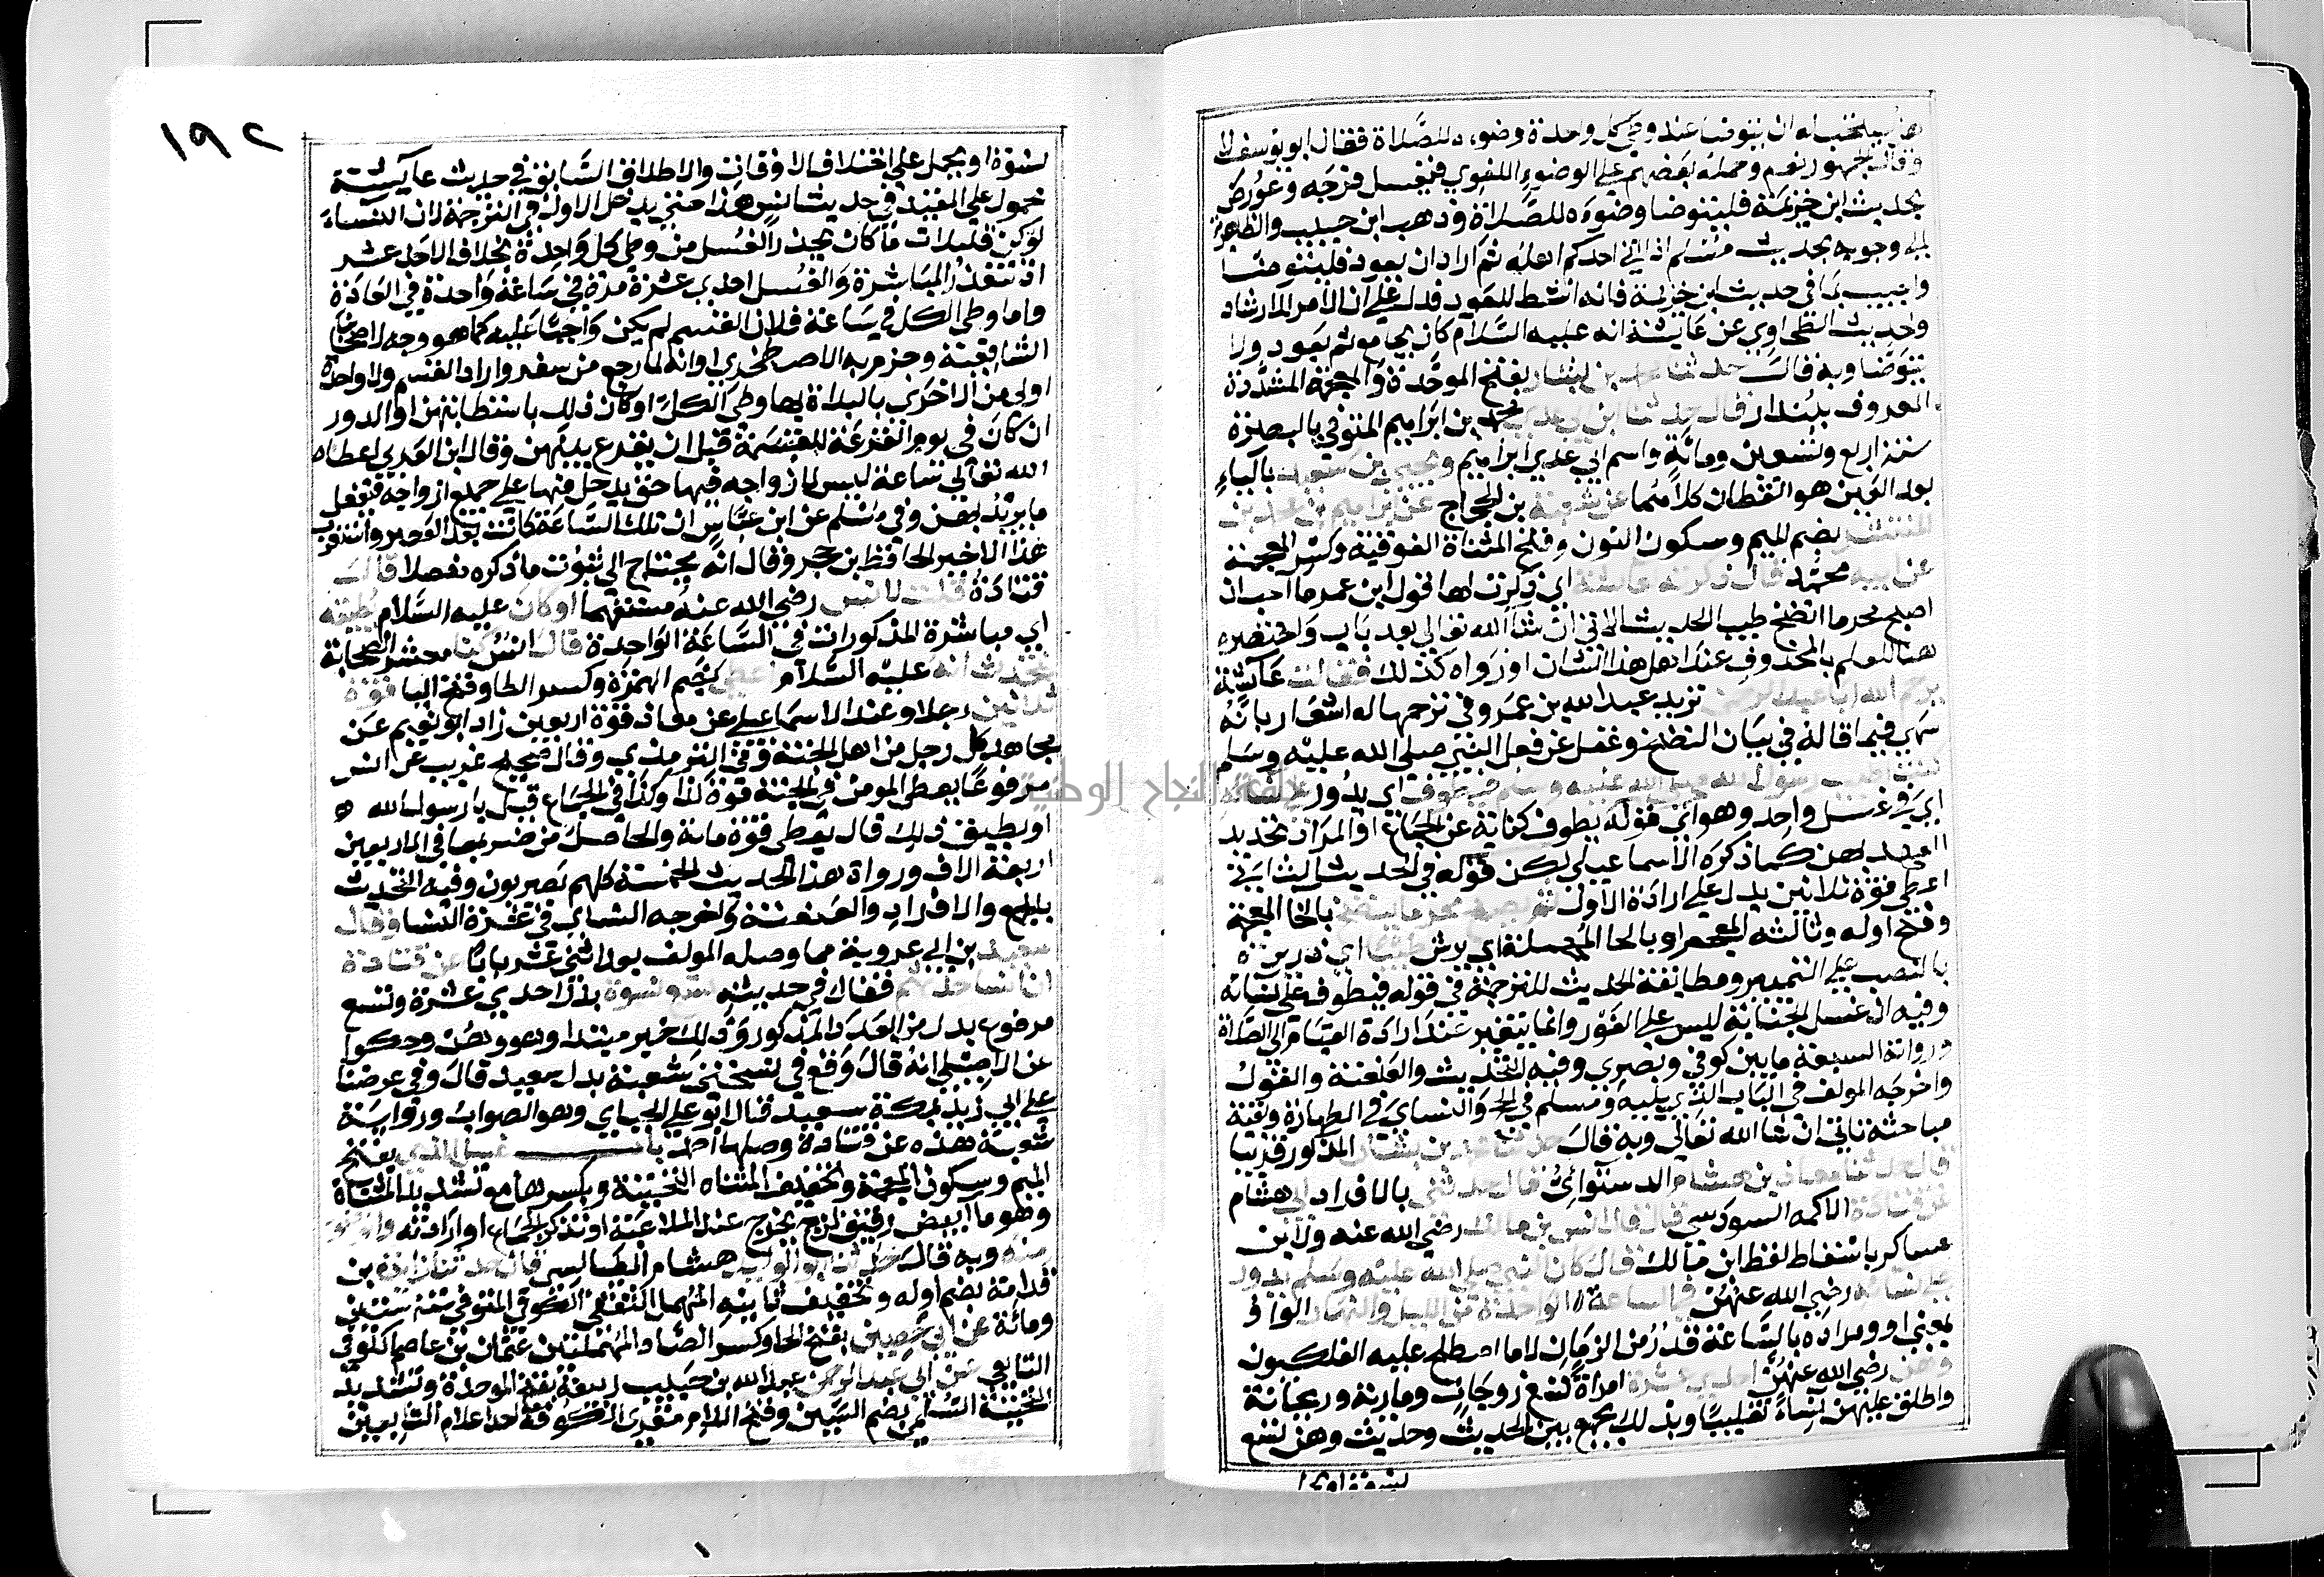 هل يستحب له ان يتوضا عند وطئ كل واحدة وضوءه للصلاة فقال ابو يوسف لا
وقال الجمهور نعم وحمله بعضهم على الوضوء اللغوي فيغسل فرجه وعورض
بحديث ابن خزيمة فليتوضا وضوءه للصلاة وذهب ابن حبيب والظاهرية
الى وجوبه بحديث مسلم اذا اتى احدكم اهله ثم اراد ان يعود فليتوضا
واجيب بما في حديث ابن خزيمة فانه انشط للعود فدل على ان الامر للارشاد
وحديث الطحاوي عن عايشة انه عليه السلام كان يجامع ثم يعود ولا
يتوضا وبه قال حدثنا محمد بن بشار بفتح الموحدة والمعجمة المشددة
المعروف ببندار قال حدثنا ابن ابي عدي محمد بن ابراهيم المتوفي بالبصرة
سنة اربع وتسعين ومائة واسم ابي عدي ابراهيم ويحيى بن سعيد بالياء
بعد العين هو القطان كلاهما عن شعبة بن الحجاج عن ابراهيم بن محمد بن
المنتشر بضم الميم وسكون النون وفتح المثناة الفوقية وكسر المعجمة
عن ابيه محمد قال ذكرته لعائشة اي ذكرت لها قول ابن عمر ما احب ان
اصبح محرما انضخ طيبا الحديث الاتي ان شاء الله تعالى بعد باب واختصره
هنا للعلم بالمحذوف عند اهل هذا الشان او رواه كذلك فقالت عائشة
يرحم الله ابا عبد الرحمن تريد عبد الله بن عمر وفي ترحمها له اشعار بانه
سهى فيما قاله في بيان النضخ وغفل عن فعل النبي صلى الله عليه وسلم
كنت اطيب رسول الله صلى الله عليه وسلم فيطوف اي يدور على نسائه
اي في غسل واحد وهو اي قوله يطوف كناية عن الجماع او المراد تجديد
العهد بهن كما ذكره الاسماعيلي لكن قوله في الحديث الثاني
اعطي قوة ثلاثين يدل على ارادة الاول ثم يصبح محرما ينضخ بالخا المعجمة
وفتح اوله وثالثه المعجم او بالحا المهملة اي يرش طيبا اي ذريرة
بالنصب على التمييز ومطابقة الحديث للترجمة في قوله فيطوف على نسائه
وفيه ان غسل الجنابة ليس على الفور وانما يتعين عند ارادة القيام الى الصلاة
ورواته السبعة ما بين كوفي وبصري وفيه التحديث والعنعنة والقول
واخرجه المولف في الباب الذي يليه ومسلم في الحج والنساي في الطهارة وبقية
مباحثه تاتي ان شا الله تعالى وبه قال حدثنا محمد بن بشار المذكور قريبا
قال حدثنا معاذ بن هشام الدستوائي قال حدثني بالافراد ابي هشام
عن قتادة الاكمه السدوسي قال قال انس بن مالك رضي الله عنه ولابن
عساكر باسقاط لفظ ابن مالك قال كان النبي صلى الله عليه وسلم يدور
على نسائه رضي الله عنهن في الساعة الواحدة من الليل والنهار الواو
بمعنى او ومراده بالساعة قدر من الزمان لا ما اصطلح عليه الفلكيون
وهن رضي الله عنهن احدى عشرة امراة تسع زوجات ومارية وريحانة
واطلق عليهن نساء تغليبا وبذلك يجمع بين الحديث وحديث وهن تسع
نسوة او يحمل
١٩٢
نسوة او يحمل على اختلاف الاوقات والاطلاق السابق في حديث عائشة
محمول على المقيد في حديث انس هذا حتى يدخل الاول في الترجمة لان النساء
لو كن قليلات ما كان يتعذر الغسل من وطئ كل واحدة بخلاف الاحدى عشر
اذ تتعذر المباشرة والغسل احدى عشرة مرة في ساعة واحدة في العادة
واما وطئ الكل في ساعة فلان القسم لم يكن واجبا عليه كما هو وجه لاصحابنا
الشافعية وجزم به الاصطخري او انه لما رجع من سفر واراد القسم ولا واحدة
اولى من الاخرى بالبداة بها وطئ الكل او كان ذلك باستطابتهن او الدور
ان كان في يوم القرعة للقسمة قبل ان يقرع بينهن وقال ابن العربي اعطاه
الله تعالى ساعة ليس لازواجه فيها حق يدخل فيها على جميع ازواجه فيفعل
ما يريد بهن وفي مسلم عن ابن عباس ان تلك الساعة كانت بعد العصر واستغرب
هذا الاخير الحافظ بن حجر وقال انه يحتاج الى ثبوت ما ذكره مفصلا قال
قتادة قلت لانس رضي الله عنه مستفهما او كان عليه السلام يطيقه
اي مباشرة المذكورات في الساعة الواحدة قال انس كنا معشر الصحابة
نتحدث انه عليه السلام اعطي بضم الهمزة وكسر الطا وفتح اليا قوة
ثلاثين رجلا وعند الاسماعيلي عن معاذ قوة اربعين زاد ابو نعيم عن
مجاهد كل رجل من اهل الجنة وفي الترمذي وقال صحيح غريب عن انس
مرفوعا يعطى المومن في الجنة قوة كذا وكذا في الجماع قيل يا رسول الله
او يطيق ذلك قال يعطى قوة مائة والحاصل من ضربها في الاربعين
اربعة الاف ورواة هذا الحديث الخمسة كلهم بصريون وفيه التحديث
بالجمع والافراد والعنعنة واخرجه النساي في عشرة النسا وقال
سعيد بن ابي عروبة مما وصله المولف بعد اثني عشر بابا عن قتادة
ان انسا حدثهم فقال في حديثه تسع نسوة بدل احدى عشرة وتسع
مرفوع بدل من العدد المذكور وذلك خبر مبتدا وهو وهن وحكوا
عن الاصيلي انه قال وقع في نسختي شعبة بدل سعيد قال وفي عرضنا
على ابي زيد بمكة سعيد قال ابو علي الجياني وهو الصواب ورواية
شعبة هذه عن قتادة وصلها احمد باب غسل المذي بفتح
الميم وسكون المعجمة وتخفيف المثناه التحتية وبكسرها مع تشديد المثناة
وهو ما ابيض رقيق لزج يخرج عند الملاعبة او تذكر الجماع او ارادته والوضوء
منه وبه قال حدثنا ابو الوليد هشام الطيالسي قال حدثنا زائدة بن
قدامة بضم اوله وتخفيف ثانيه المهمل الثقفي الكوفي المتوفي سنة ستين
ومائة عن ابي حصين بفتح الحا وكسر الصاد المهملتين عثمان بن عاصم الكوفي
التابعي عن ابي عبد الرحمن عبد الله بن حبيب ربيعة بفتح الموحدة وتشديد
التحتية السلمي بضم السين وفتح اللام مقري الكوفة احد اعلام التابعين
جامعة النجاح الوطنية